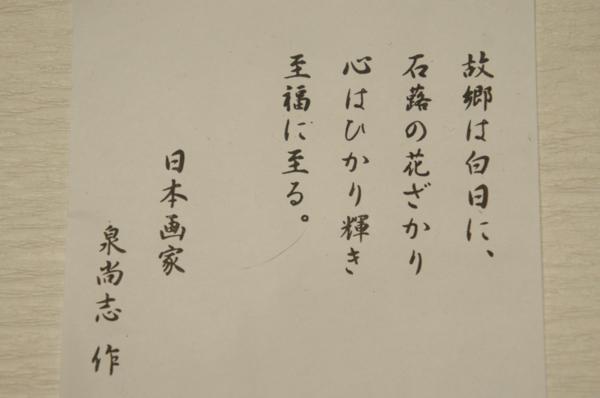 故郷は白日に、
石蕗の花ざかり
心はひかり輝き
至福に至る。
日本画家
泉尚志 作